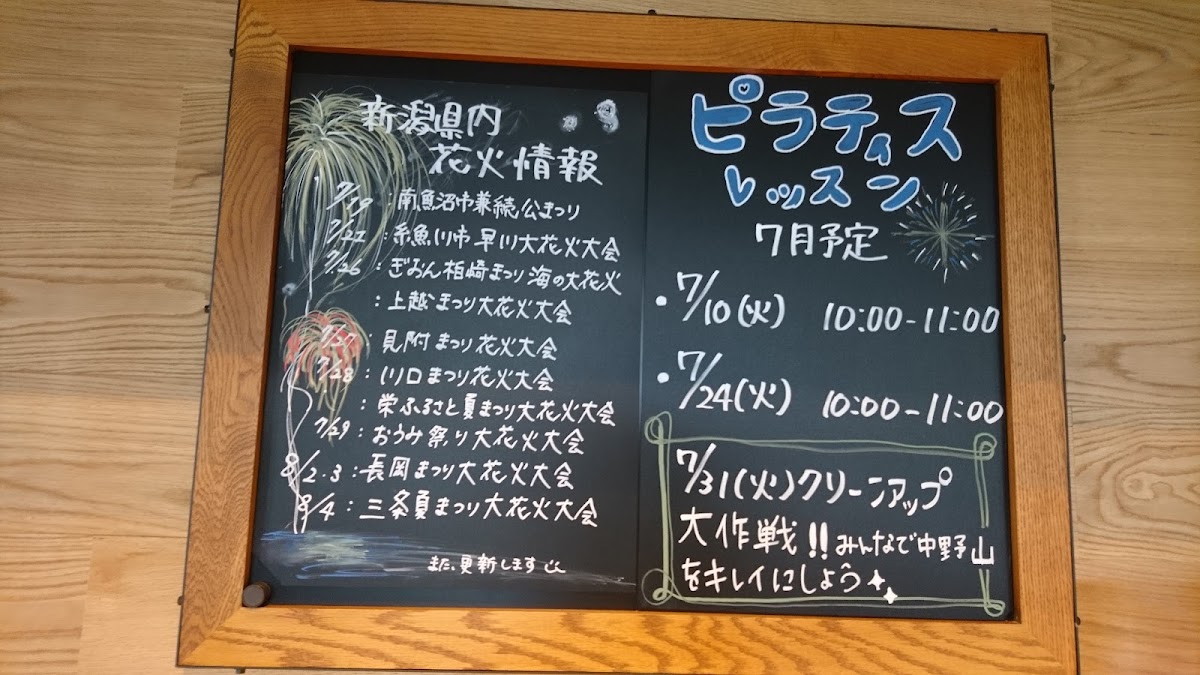 新潟県内
花火情報
7/19:南魚沼市兼続公まつり
7/22:糸魚川市早川大花火大会
7/26:ぎおん柏崎まつり海の大花火
:上越まつり大花火大会
7/27:見附まつり花火大会
7/28:川口まつり花火大会
:栄ふるさと夏まつり大花火大会
7/29:おうみ祭り大花火大会
8/2.3:長岡まつり大花火大会
8/4:三条夏まつり大花火大会
また、更新します
ピラティス
レッスン
7月予定
・7/10(火) 10:00-11:00
・7/24(火) 10:00-11:00
7/31(火)クリーンアップ
大作戦!!みんなで中野山
をキレイにしよう